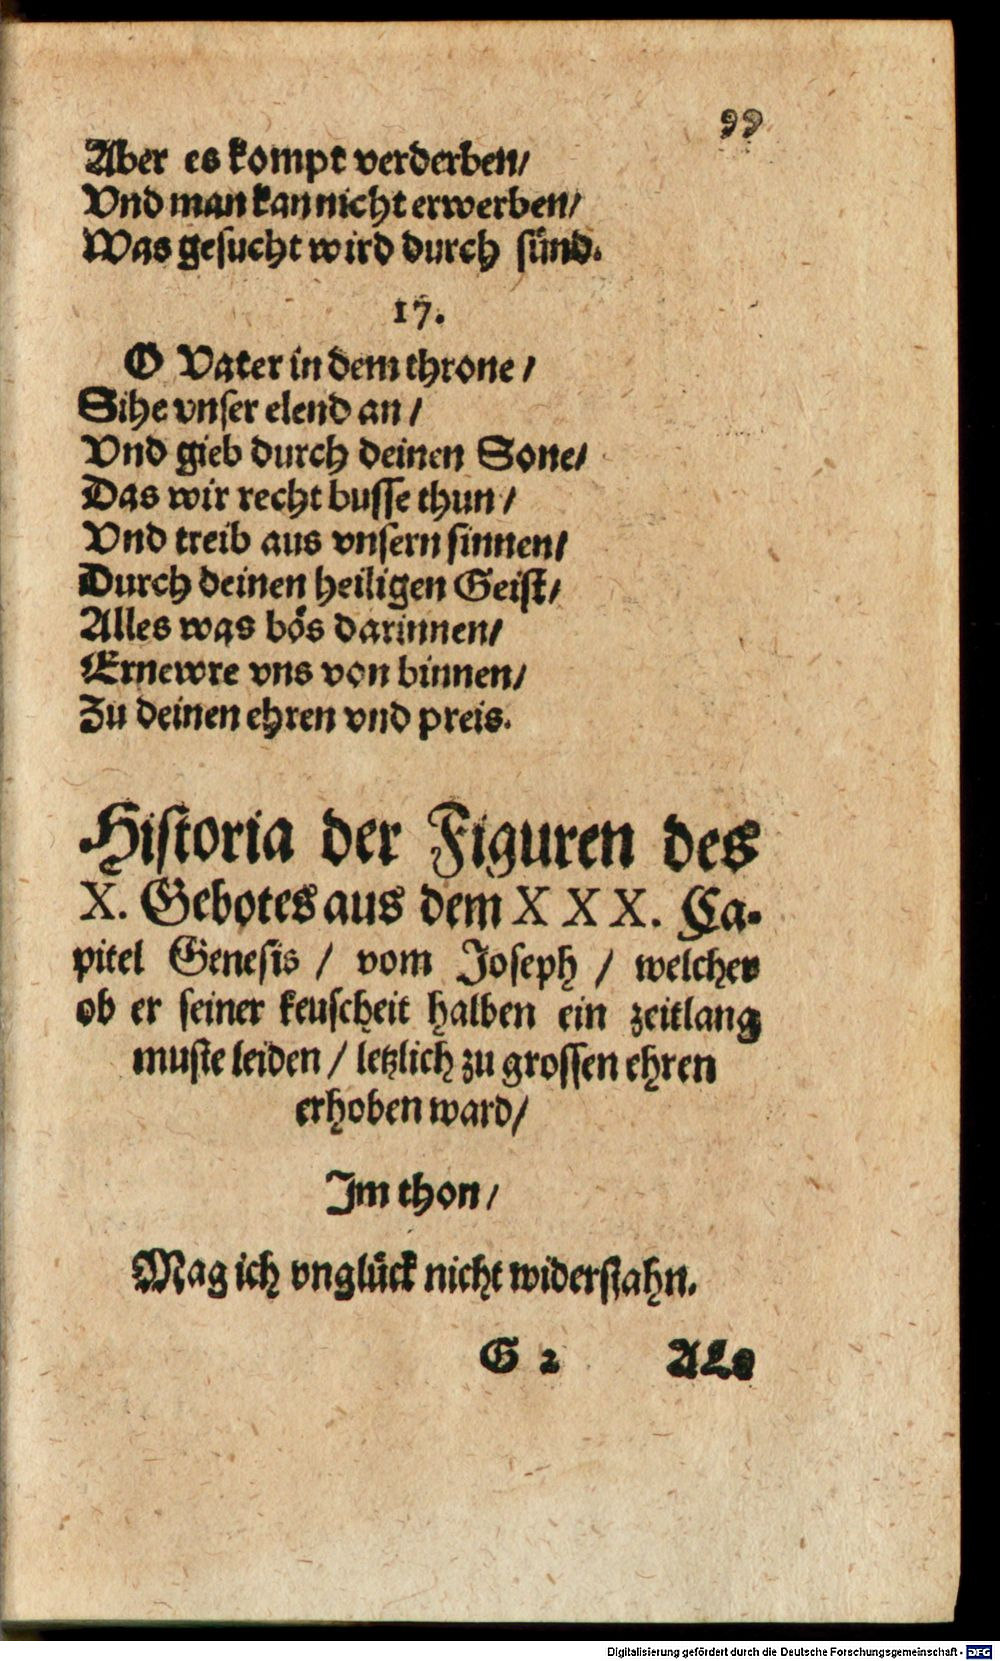 99
Aber es kompt verderben/
Vnd man kan nicht erwerben/
Was gesucht wird durch sünd.
17.
O Vater in dem throne/
Sihe vnser elend an/
Vnd gieb durch deinen Sone/
Das wir recht busse thun/
Vnd treib aus vnsern sinnen/
Durch deinen heiligen Geist/
Alles was bös darinnen/
Ernewre vns von binnen/
Zu deinen ehren vnd preis.
Historia der Figuren des
X. Gebotes aus dem XXX. Ca-
pitel Genesis / vom Joseph / welcher
ob er seiner keuscheit halben ein zeitlang
muste leiden / letzlich zu grossen ehren
erhoben ward/
Im thon/
Mag ich vnglück nicht widerstahn.
G 2 ALs
Digitalisierung gefördert durch die Deutsche Forschungsgemeinschaft - DFG